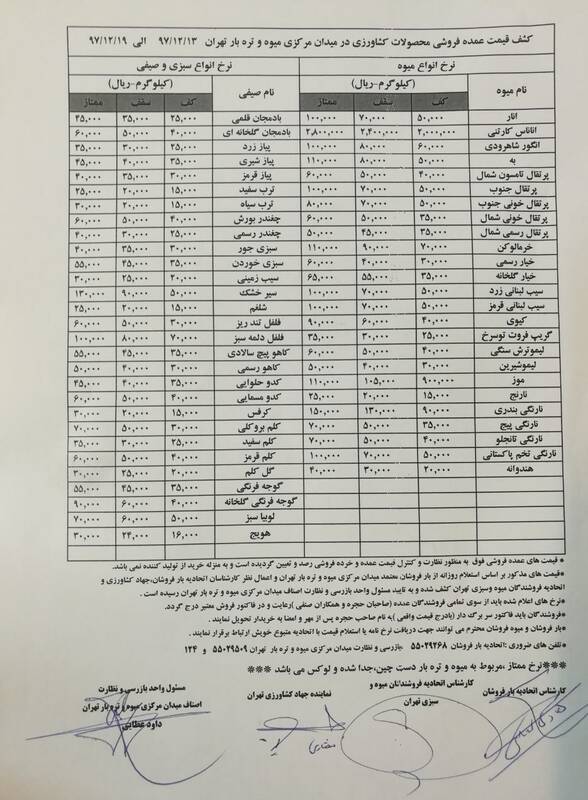 کشف قیمت عمده فروشی محصولات کشاورزی در میدان مرکزی میوه و تره بار تهران ۹۷/۱۲/۱۳ الی ۹۷/۱۲/۱۹
نرخ انواع میوه نرخ انواع سبزی و صیفی
نام میوه (کیلوگرم-ریال) نام صیفی (کیلوگرم-ریال)
کف سقف ممتاز کف سقف ممتاز
انار ۵۰,۰۰۰ ۷۰,۰۰۰ ۱۰۰,۰۰۰ بادمجان قلمی ۲۵,۰۰۰ ۳۵,۰۰۰ ۴۵,۰۰۰
اناناس کارتنی ۲,۰۰۰,۰۰۰ ۲,۴۰۰,۰۰۰ ۲,۸۰۰,۰۰۰ بادمجان گلخانه ای ۴۰,۰۰۰ ۵۰,۰۰۰ ۶۰,۰۰۰
انگور شاهرودی ۶۰,۰۰۰ ۸۰,۰۰۰ ۱۰۰,۰۰۰ پیاز زرد ۲۵,۰۰۰ ۳۰,۰۰۰ ۳۵,۰۰۰
به ۵۰,۰۰۰ ۸۰,۰۰۰ ۱۱۰,۰۰۰ پیاز شیری ۳۵,۰۰۰
پرتقال تامسون شمال ۴۰,۰۰۰ ۵۰,۰۰۰ ۶۰,۰۰۰ پیاز قرمز ۳۰,۰۰۰ ۳۵,۰۰۰ ۴۰,۰۰۰
پرتقال جنوب ۵۰,۰۰۰ ۷۰,۰۰۰ ۱۰۰,۰۰۰ ترب سفید ۱۵,۰۰۰ ۲۰,۰۰۰ ۲۵,۰۰۰
پرتقال خونی جنوب ۵۰,۰۰۰ ۷۰,۰۰۰ ۸۰,۰۰۰ ترب سیاه ۱۵,۰۰۰ ۲۰,۰۰۰ ۳۰,۰۰۰
پرتقال خونی شمال ۳۵,۰۰۰ ۵۰,۰۰۰ ۶۰,۰۰۰ چغندر بورش ۴۰,۰۰۰ ۵۰,۰۰۰ ۶۰,۰۰۰
پرتقال رسمی شمال ۳۵,۰۰۰ ۴۵,۰۰۰ ۵۰,۰۰۰ چغندر رسمی ۲۰,۰۰۰ ۳۰,۰۰۰ ۴۰,۰۰۰
خرمالوکن ۷۰,۰۰۰ ۹۰,۰۰۰ ۱۱۰,۰۰۰ سبزی جور ۳۰,۰۰۰ ۳۵,۰۰۰ ۴۰,۰۰۰
خیار رسمی ۴۰,۰۰۰ ۵۰,۰۰۰ ۶۰,۰۰۰ سبزی خوردن ۳۵,۰۰۰ ۴۵,۰۰۰ ۵۵,۰۰۰
خیار گلخانه ۳۵,۰۰۰ ۵۵,۰۰۰ ۶۵,۰۰۰ سیب زمینی ۲۰,۰۰۰ ۲۵,۰۰۰ ۳۰,۰۰۰
سیب لبنانی زرد ۵۰,۰۰۰ ۷۰,۰۰۰ ۱۰۰,۰۰۰ سیر خشک ۵۰,۰۰۰ ۹۰,۰۰۰ ۱۳۰,۰۰۰
سیب لبنانی قرمز ۵۰,۰۰۰ ۷۰,۰۰۰ ۱۰۰,۰۰۰ شلغم ۱۵,۰۰۰ ۲۰,۰۰۰ ۲۵,۰۰۰
کیوی ۴۰,۰۰۰ ۶۰,۰۰۰ ۹۰,۰۰۰ فلفل تند ریز ۳۰,۰۰۰ ۵۰,۰۰۰ ۶۰,۰۰۰
گریپ فروت توسرخ ۲۵,۰۰۰ ۳۰,۰۰۰ ۳۵,۰۰۰ فلفل دلمه سبز ۷۰,۰۰۰ ۸۰,۰۰۰ ۱۰۰,۰۰۰
لیموترش سنگی ۴۰,۰۰۰ ۵۰,۰۰۰ ۶۰,۰۰۰ کاهو پیچ سالادی ۳۵,۰۰۰ ۴۵,۰۰۰ ۵۵,۰۰۰
لیموشیرین ۳۰,۰۰۰ ۴۰,۰۰۰ ۵۰,۰۰۰ کاهو رسمی ۳۰,۰۰۰ ۴۰,۰۰۰ ۵۰,۰۰۰
موز ۹۰۰,۰۰۰ ۱۰۵,۰۰۰ ۱۱۰,۰۰۰ کدو حلوایی ۳۵,۰۰۰ ۴۰,۰۰۰ ۴۵,۰۰۰
نارنج ۱۵,۰۰۰ ۲۰,۰۰۰ ۲۵,۰۰۰ کدو مسمایی ۴۰,۰۰۰ ۵۰,۰۰۰ ۶۰,۰۰۰
نارنگی بندری ۹۰,۰۰۰ ۱۳۰,۰۰۰ ۱۵۰,۰۰۰ کرفس ۱۵,۰۰۰ ۲۰,۰۰۰ ۳۰,۰۰۰
نارنگی پیج ۳۵,۰۰۰ ۵۰,۰۰۰ ۷۰,۰۰۰ کلم بروکلی ۳۰,۰۰۰ ۵۰,۰۰۰ ۷۰,۰۰۰
نارنگی تانجلو ۴۰,۰۰۰ ۵۰,۰۰۰ ۷۰,۰۰۰ کلم سفید ۲۵,۰۰۰ ۳۰,۰۰۰ ۳۵,۰۰۰
نارنگی تخم پاکستانی ۵۰,۰۰۰ ۷۰,۰۰۰ ۱۰۰,۰۰۰ کلم قرمز ۴۰,۰۰۰ ۵۰,۰۰۰ ۶۰,۰۰۰
هندوانه ۲۰,۰۰۰ ۳۰,۰۰۰ ۴۰,۰۰۰ گل کلم ۲۰,۰۰۰ ۲۵,۰۰۰ ۳۰,۰۰۰
گوجه فرنگی ۳۵,۰۰۰ ۴۵,۰۰۰ ۵۵,۰۰۰
گوجه فرنگی گلخانه ۴۰,۰۰۰ ۶۰,۰۰۰ ۹۰,۰۰۰
لوبیا سبز ۵۰,۰۰۰ ۶۰,۰۰۰ ۷۰,۰۰۰
هویج ۱۶,۰۰۰ ۲۴,۰۰۰ ۳۰,۰۰۰
* قیمت های عمده فروشی فوق به منظور نظارت و کنترل قیمت عمده و خرده فروشی رصد و تعیین گردیده است و به منزله خرید از تولید کننده نمی باشد.
*قیمت های مذکور بر اساس استعلام روزانه از بار فروشان معتمد میدان مرکزی میوه و تره بار تهران و اعمال نظر کارشناسان اتحادیه بار فروشان،جهاد کشاورزی و
اتحادیه فروشندگان میوه وسبزی تهران کشف شده و به تایید مسئول واحد بازرسی و نظارت اصناف میدان مرکزی میوه و تره بار تهران رسیده است .
*نرخ های اعلام شده باید از سوی تمامی فروشندگان عمده (صاحبان حجره و همکاران صنفی )رعایت و در فاکتور فروش معتبر درج گردد.
*فروشندگان باید فاکتور سر برگ دار (بادرج قیمت واقعی )به نام صاحب حجره پس از مهر و امضا به خریدار تحویل نمایند .
*بار فروشان و میوه فروشان محترم می توانند جهت دریافت نرخ نامه یا استعلام قیمت با اتحادیه متبوع خویش ارتباط برقرار نمایند .
*تلفن های ضروری :اتحادیه بار فروشان ۵۵۰۲۹۲۶۸ ،بازرسی و نظارت میدان مرکزی میوه و تره بار تهران ۵۵۰۲۹۵۰۹ و ۱۲۴
***نرخ ممتاز ،مربوط به میوه و تره بار دست چین،جدا شده و لوکس می باشد ***
کارشناس اتحادیه بار فروشان
کارشناس اتحادیه فروشندگان میوه و
سبزی تهران
نماینده جهاد کشاورزی تهران
مسئول واحد بازرسی و نظارت
اصناف میدان مرکزی میوه و تره بار تهران
داود عطایی